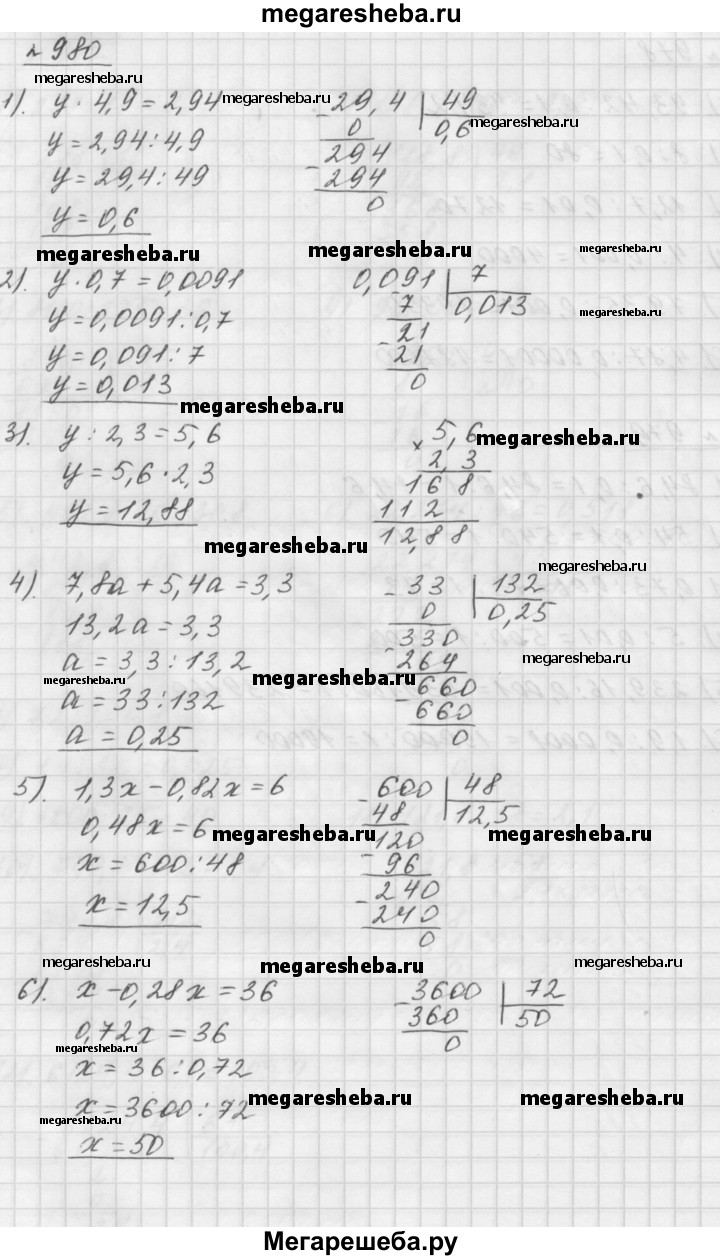 megaresheba.ru
№ 980
megaresheba.ru
1). y · 4,9 = 2,94 megaresheba.ru
y = 2,94 : 4,9
y = 29,4 : 49
y = 0,6
- 29,4 | 49
0 0,6 megaresheba.ru
294
- 294
0
megaresheba.ru megaresheba.ru megaresheba.ru
2). y · 0,7 = 0,0091
y = 0,0091 : 0,7
y = 0,091 : 7
y = 0,013
0,091 | 7
- 7 0,013 megaresheba.ru
- 21
21
0
megaresheba.ru
3). y : 2,3 = 5,6
y = 5,6 · 2,3
y = 12,88
× 5,6 megaresheba.ru
2,3
168
112
12,88
megaresheba.ru megaresheba.ru
4). 7,8a + 5,4a = 3,3
13,2a = 3,3
a = 3,3 : 13,2
megaresheba.ru megaresheba.ru megaresheba.ru
a = 33 : 132
a = 0,25
- 33 | 132
0 0,25
- 330
264
- 660
660
0
5). 1,3x - 0,82x = 6
0,48x = 6 megaresheba.ru megaresheba.ru
x = 600 : 48
x = 12,5
- 600 | 48
48 12,5
120
- 96
- 240
240
0
megaresheba.ru megaresheba.ru megaresheba.ru
6). x - 0,28x = 36
0,72x = 36
megaresheba.ru
x = 36 : 0,72
x = 3600 : 72 megaresheba.ru megaresheba.ru
megaresheba.ru
x = 50
- 3600 | 72
360 50
0
Мегарешеба.ру